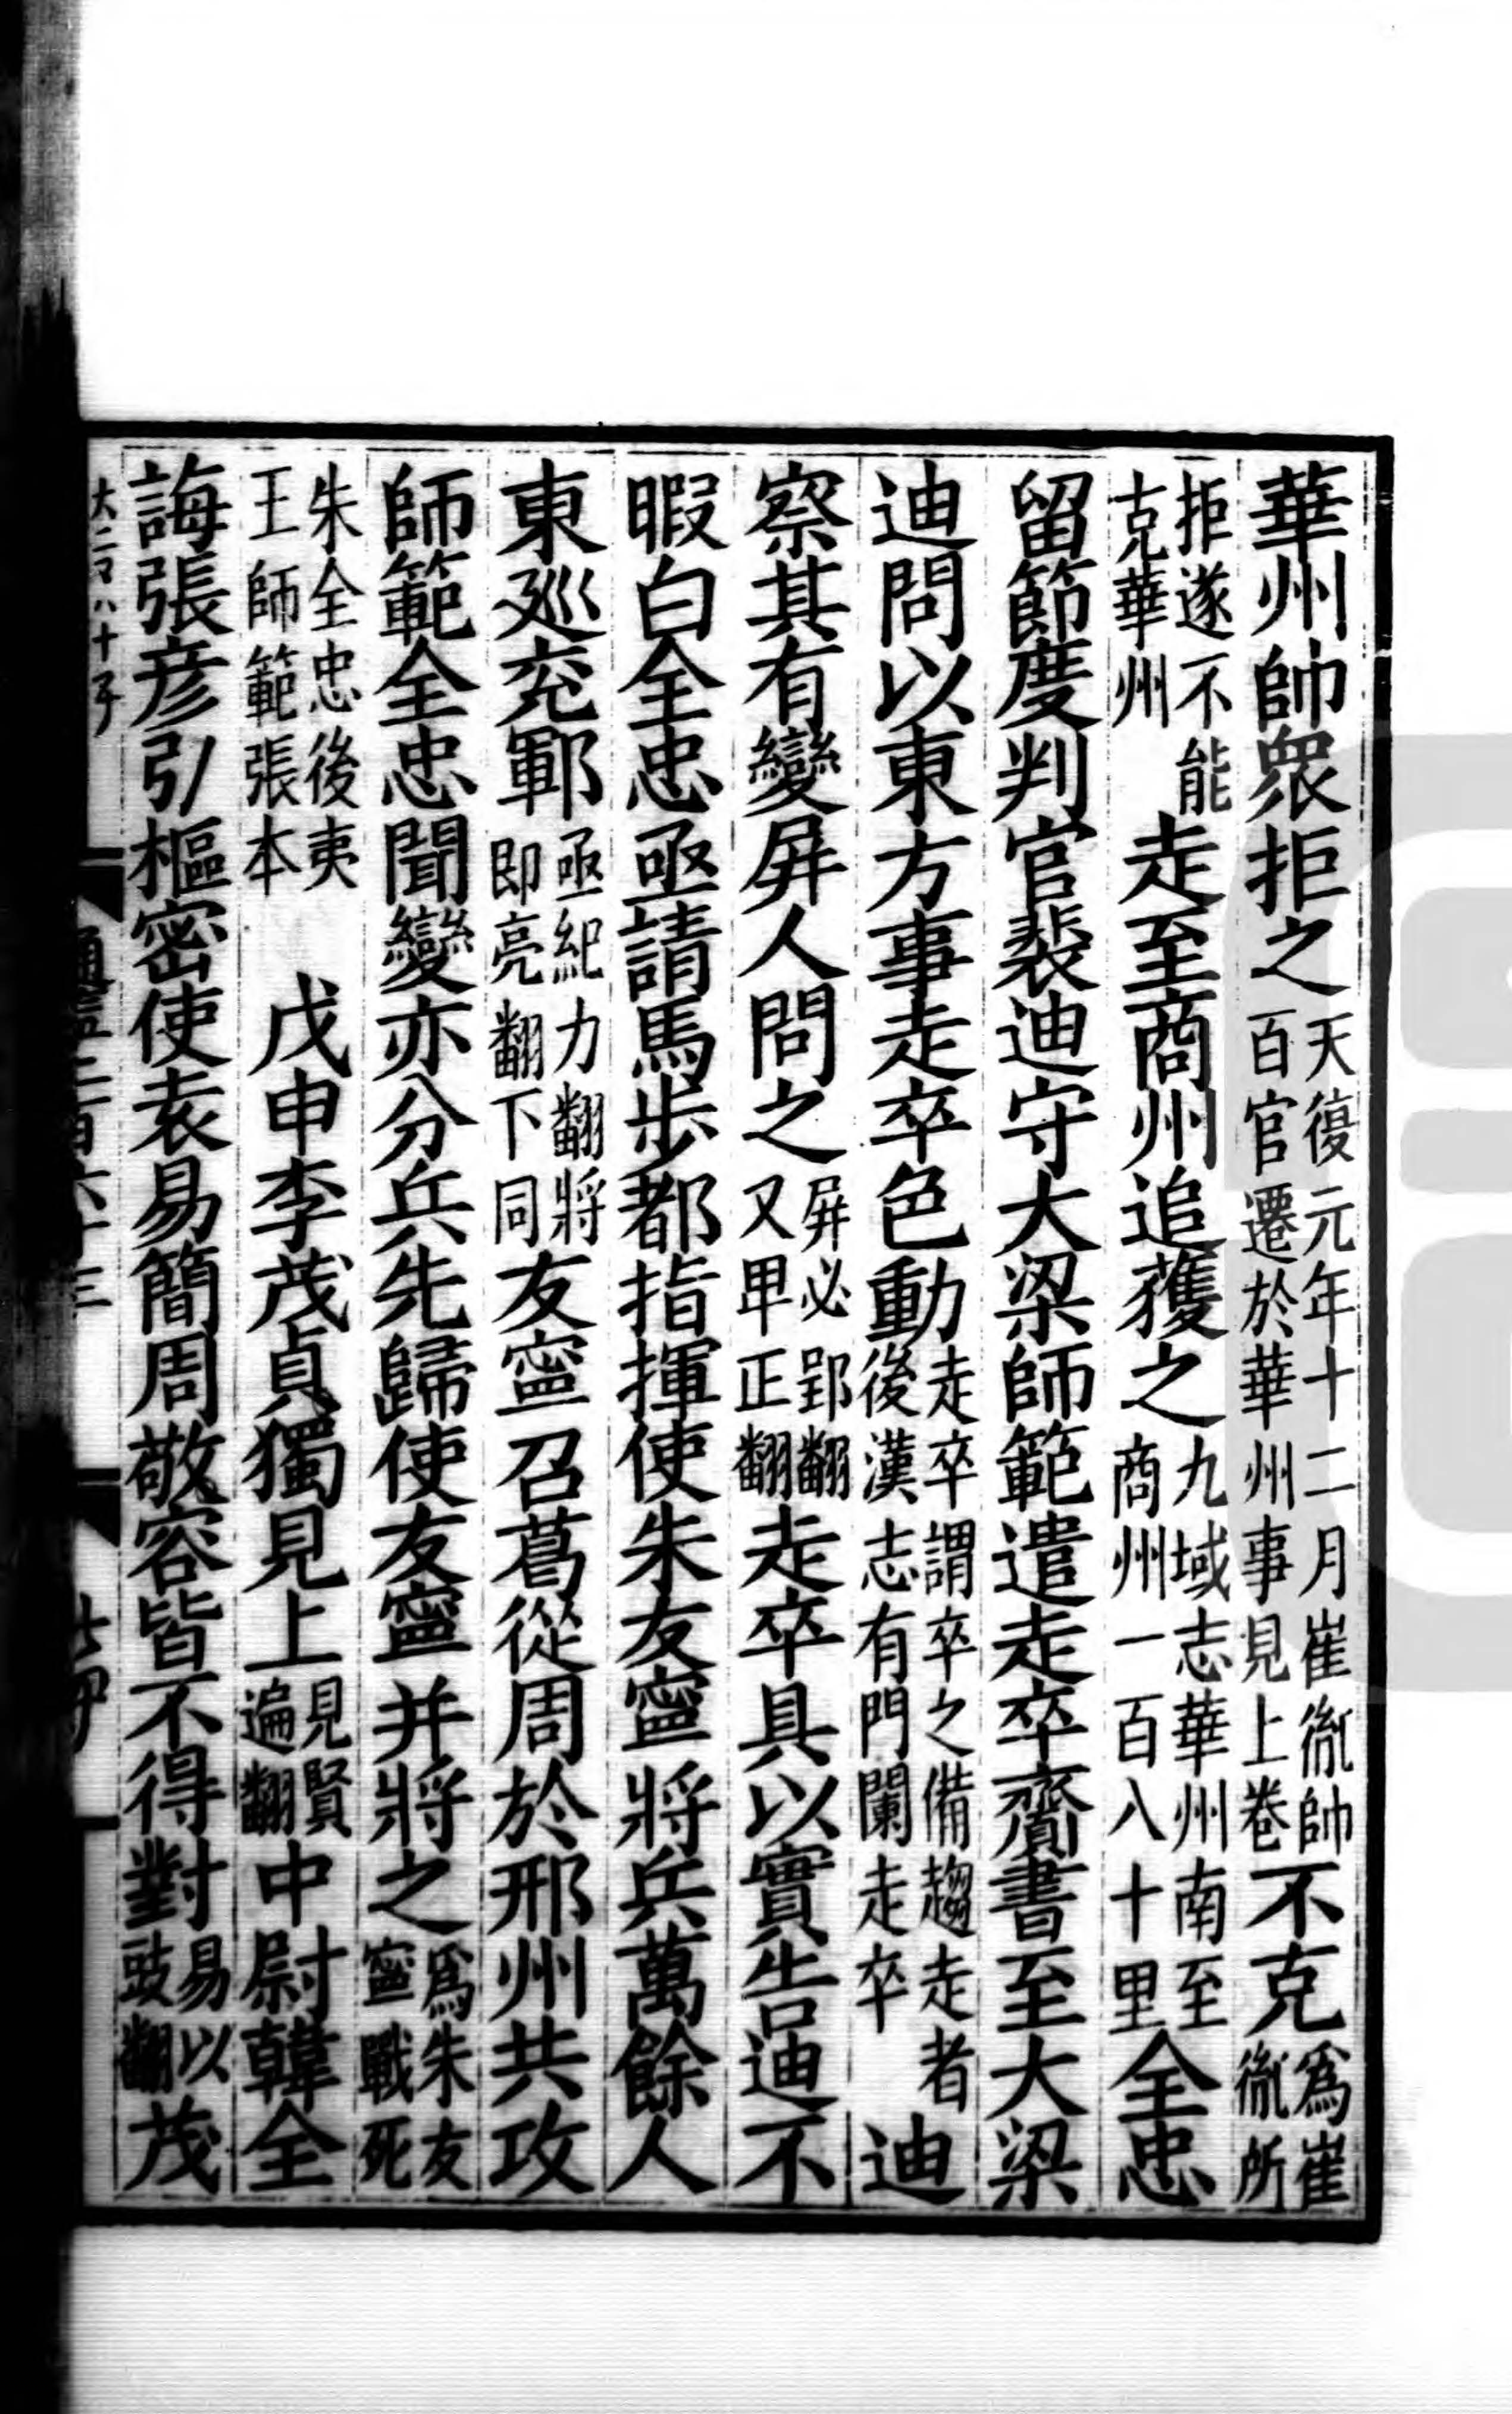 華州帥眾拒之天復元年十二月崔胤帥百官遷於華州事見上卷不克爲崔胤所
拒遂不能克華州走至商州追獲之九域志華州南至商州一百八十里全忠
留節度判官裴迪守大梁師範遣走卒齎書至大梁
迪問以東方事走卒色動走卒謂卒之備趨走者後漢志有門闌走卒迪
察其有變屏人問之屏必郢翻又卑正翻走卒具以實告迪不
暇白全忠亟請馬步都指揮使朱友寧將兵萬餘人
東廵兖鄆亟紀力翻將即亮翻下同友寧召葛從周於邢州共攻
師範全忠聞變亦分兵先歸使友寧并將之爲朱友寧戰死
朱全忠後夷王師範張本 戊申李茂貞獨見上見賢遍翻中尉韓全
誨張彥弘樞密使袁易簡周敬容皆不得對易以豉翻茂
通鑑二百六十三